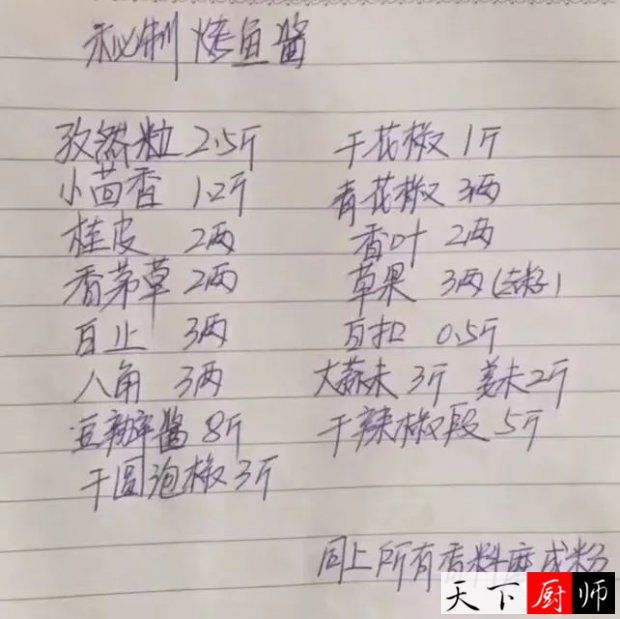 秘制烤鱼酱
孜然粒 2.5斤 干花椒 1斤
小茴香 1.2斤 青花椒 3两
桂皮 2两 香叶 2两
香茅草 2两 草果 3两(去籽)
百止 3两 百扣 0.5斤
八角 3两 大蒜末 3斤 姜末2斤
豆瓣酱 8斤 干辣椒段 5斤
干圆泡椒 3斤
同上所有香料磨成粉
天下厨师